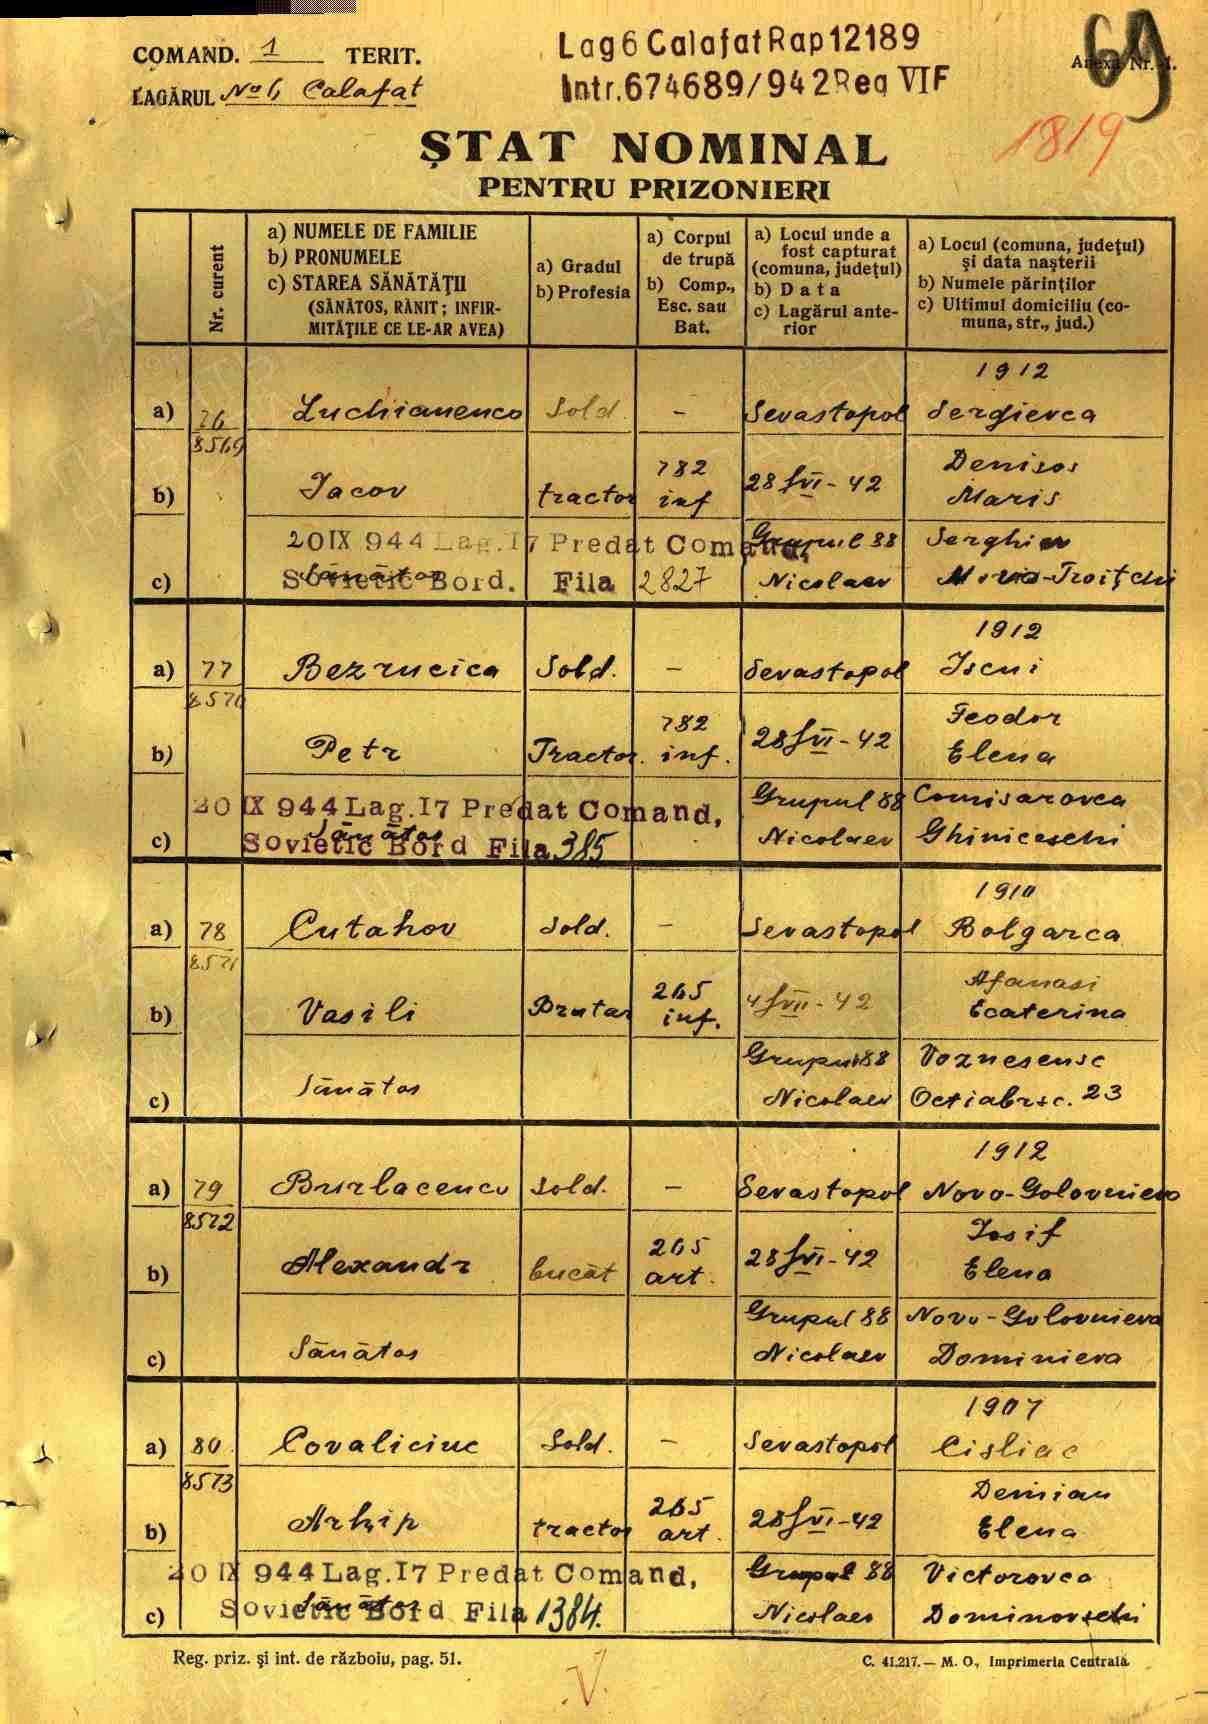 COMAND. 1 TERIT.
LAGĂRUL No 6, Calafat
Lag 6 Calafat Rap 12189
Intr. 674689/942 Reg VIF
Anexa Nr. 1.
69
1819
ȘTAT NOMINAL
PENTRU PRIZONIERI
Nr. curent
a) NUMELE DE FAMILIE
b) PRONUMELE
c) STAREA SĂNĂTĂȚII
(SĂNĂTOS, RĂNIT; INFIR-
MITĂȚILE CE LE-AR AVEA)
a) Gradul
b) Profesia
a) Corpul
de trupă
b) Comp.,
Esc. sau
Bat.
a) Locul unde a
fost capturat
(comuna, județul)
b) Data
c) Lagărul ante-
rior
a) Locul (comuna, județul)
și data nașterii
b) Numele părinților
c) Ultimul domiciliu (co-
muna, str., jud.)
1912
a) 76 Luchianenco Sold. – Sevastopol Sergievca
8569
b) Iacov tractor 782 inf 28/VI-42 Denisos
Maris
20 IX 944 Lag. I7 Predat Comand, Grupul 88 Serghiev
c) Sănătos Sovietic Bord. Fila 2827 Nicolaev Novo-Troițchi
1912
a) 77 Bezrucica Sold. – Sevastopol Iscui
8570
b) Petr Tractor. 782 inf. 28/VI-42 Feodor
Elena
20 IX 944 Lag. I7 Predat Comand, Grupul 88 Comisarovca
c) Sănătos Sovietic Bord Fila 385 Nicolaev Ghiniceschi
1910
a) 78 Cutahov Sold. – Sevastopol Bolgarca
8571
b) Vasili Brutar 265 inf. 4/VII-42 Afanasi
Ecaterina
Grupul 88 Voznesensc
c) Sănătos Nicolaev Octiabrsc. 23
1912
a) 79 Burlacencu Sold. – Sevastopol Novo-Golovnieva
8572
b) Alexandr bucăt 265 art. 28/VI-42 Iosif
Elena
Grupul 88 Novo-Golovnieva
c) Sănătos Nicolaev Dominieva
1907
a) 80 Covaliciuc Sold. – Sevastopol Cisliac
8573
b) Arhip tractor 265 art. 28/VI-42 Demian
Elena
20 IX 944 Lag. I7 Predat Comand, Grupul 88 Victorovca
c) Sănătos Sovietic Bord Fila 1384. Nicolaev Dominovschi
Reg. priz. și int. de război, pag. 51.
V.
C. 41.217. — M. O., Imprimeria Centrală